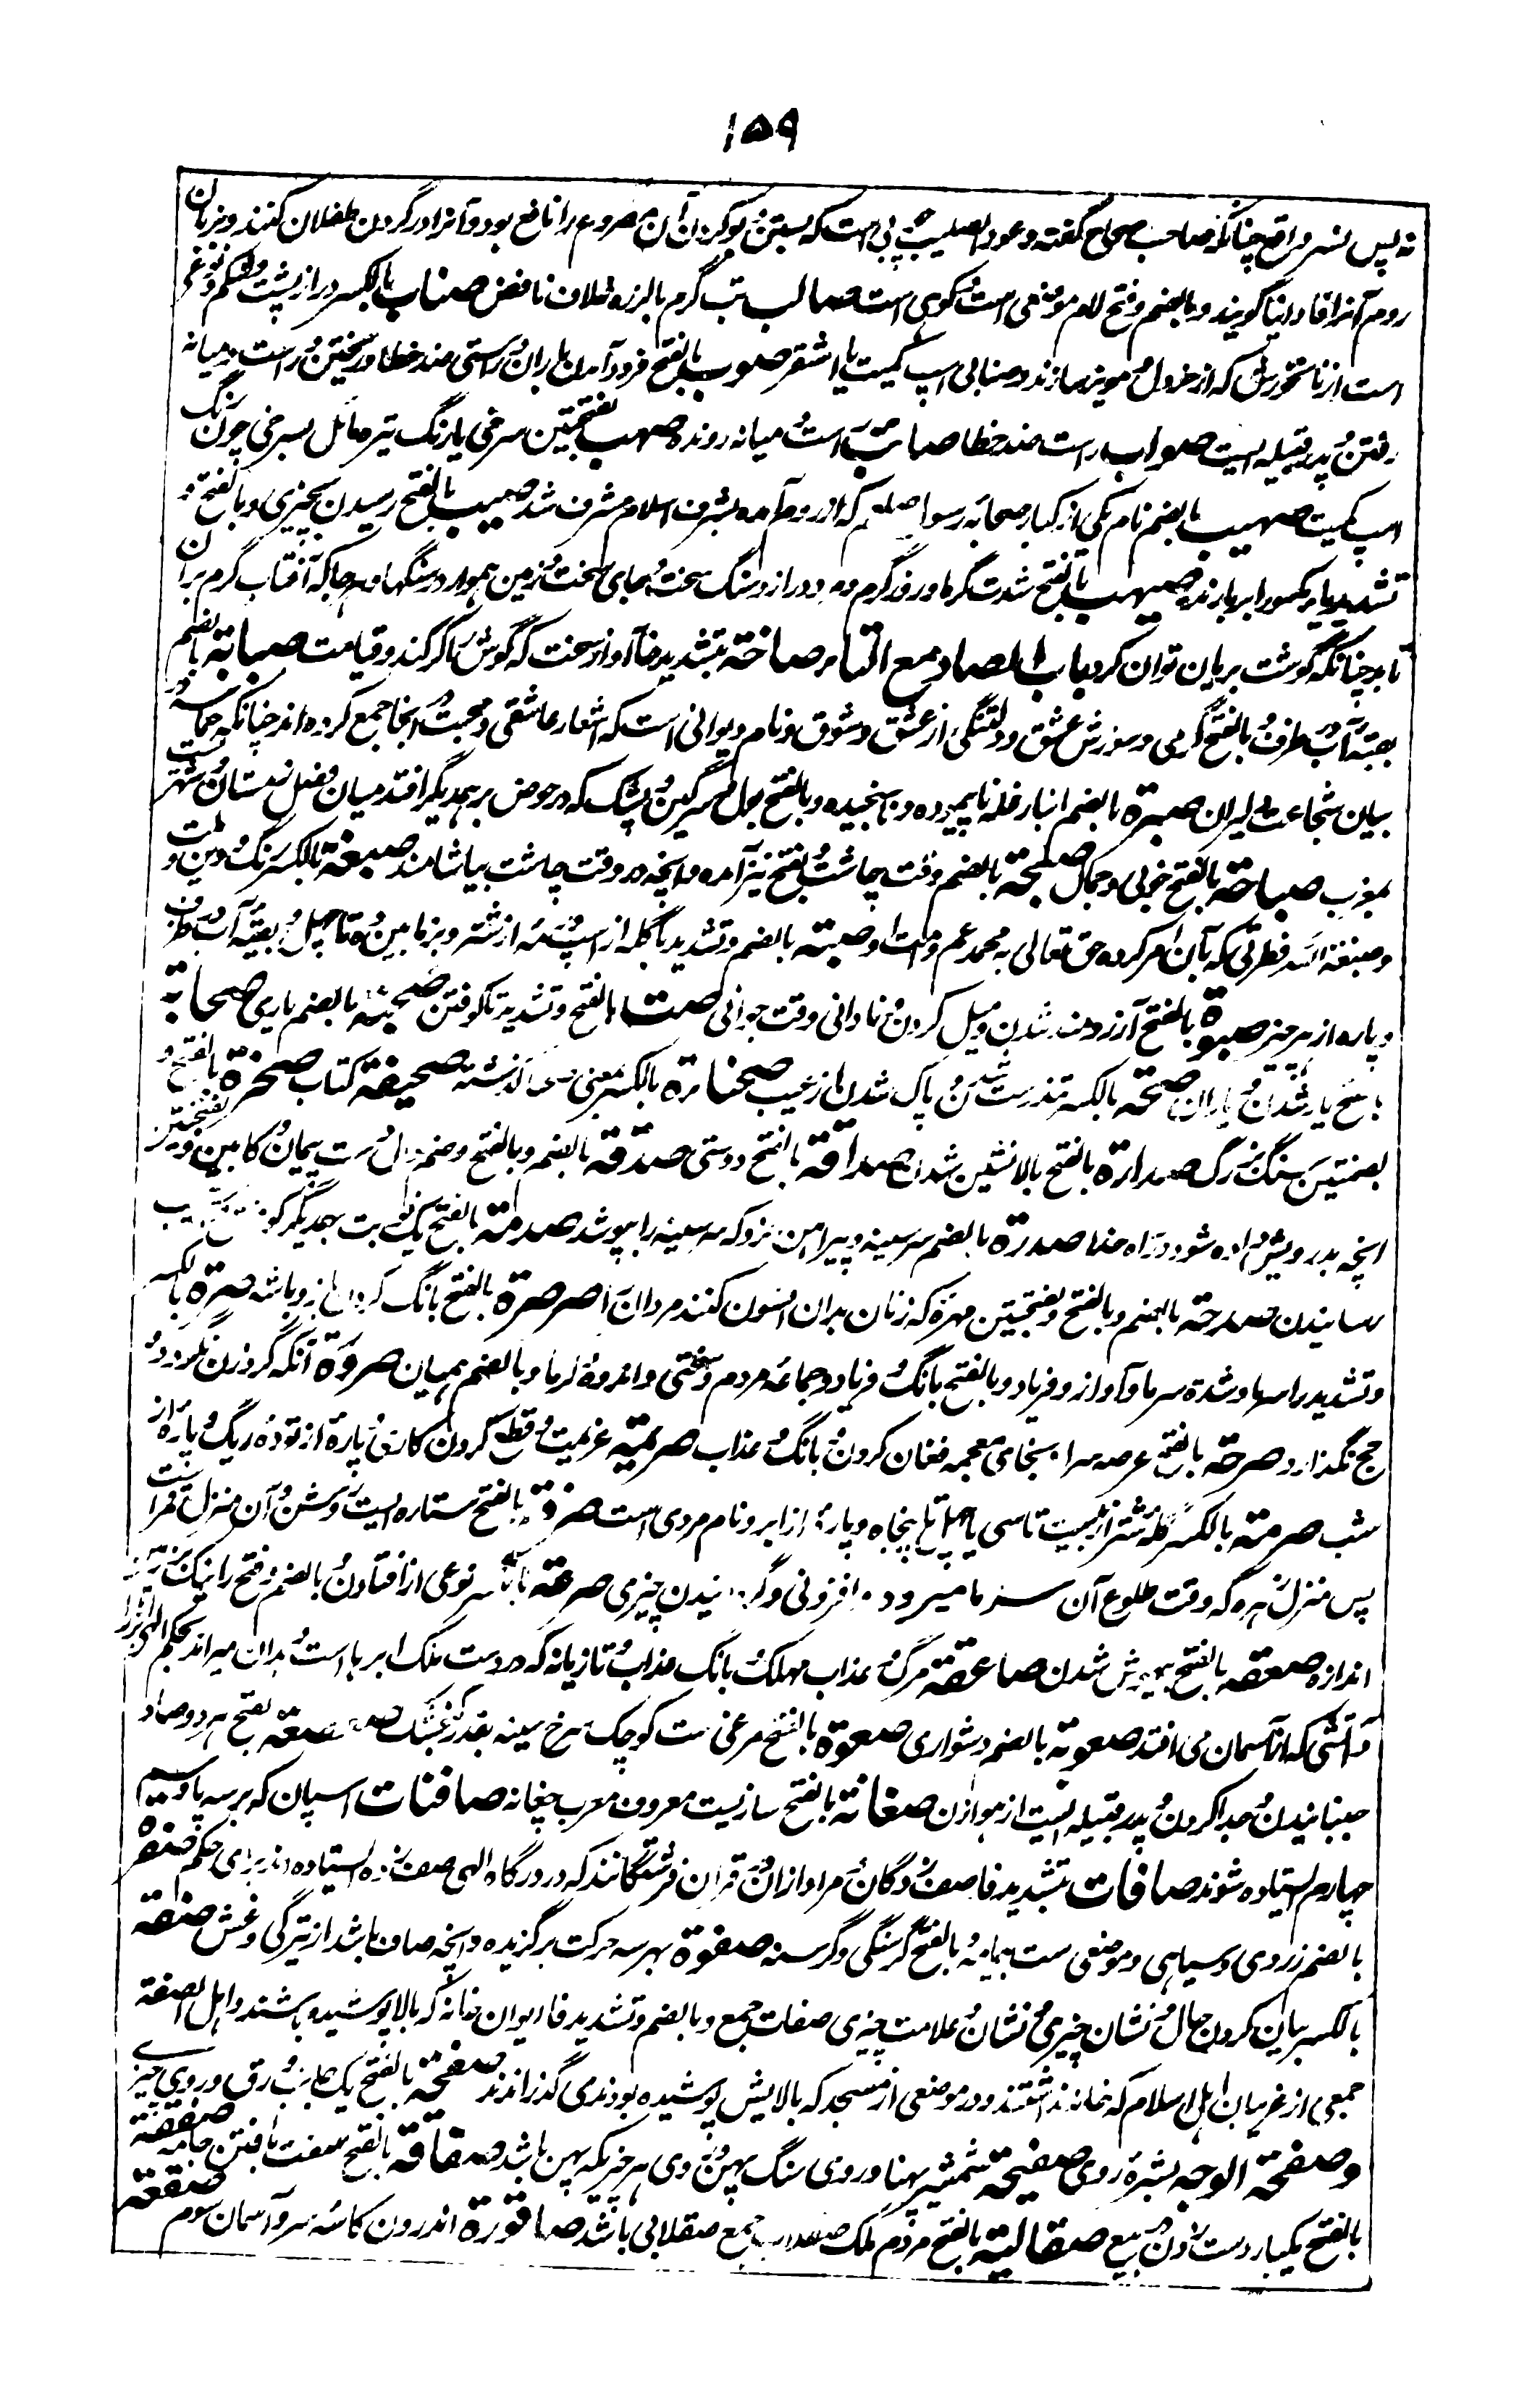 ۱۵۹
نه پس نسر واقع چنانکه صاحب صحاح گفته و عود الصلیب چوبی است که بستن و بو کردن آن مصروع را نافع بود و آنرا در گردن طفلان کنند و بزبان
روم آنرا فاوانیا گویند و بالضم و فتح لام موضعی است و کوهی است صالب تب گرم بالرزه خلاف نافض صناب بالکسر دراز پشت و شکم و نوعی
است از نانخورش که از خردل و مویز سازند و صنابی اسپ کمیت یا اشقر صوب بالفتح فرود آمدن باران و راستی ضد خطا و ریختن و راست و میانه
رفتن و پدر قبیله ایست صواب راست ضد خطا صائب راست و میانه رونده صهب بفتحتین سرخی یا رنگ تیره مائل بسرخی چون رنگ
اسپ کمیت صهیب بالضم نام یکی از کبار صحابه رسول صلعم که از روم آمده بشرف اسلام مشرف شد صیب بالفتح رسیدن بچیزی و بالفتح و
تشدید یای مکسور ابر بارنده صیهب بالفتح شدت گرما و روز گرم و مرد دراز و سنگ سخت و جای سخت و زمین هموار و سنگها و هر جا که آفتاب گرم بران
تابد چنانکه گوشت بریان توان کرد باب الصاد مع التاء صاخة بتشدید خا آواز سخت که گوش را کر کند و قیامت صبابة بالضم
بقیه آب در ظرف و بالفتح گرمی و سوزش عشق و دلتنگی از عشق و شوق و نام دیوانی است که اشعار عاشقی و محبت در آنجا جمع کرده اند چنانکه حماسه در
بیان شجاعت دلیران صبرة بالضم انبار غله ناپیموده و نسنجیده و بالفتح بول و سرگین و پشک که در حوض بر همدیگر افتد و میان فصل زمستان و شهریست
بمغرب صباحة بالفتح خوبی و جمال صبحة بالضم وقت چاشت و بفتح نیز آمده و آنچه در وقت چاشت بیاشامند صبغة بالکسر رنگ و دین و ملت
و صبغة الله فطرتی که بآن امر کرده حق تعالی به محمد عم و امت او صبته بالضم و تشدید با گله از اسپ و رمه از شتر و بز مابین ده تا چهل و بقیه آب در ظرف
و پاره از هر چیز صبوة بالفتح آرزومند شدن و میل کردن و نادانی و وقت جوانی صت بالفتح و تشدید تا کوفتن صحبة بالضم یاری صحابة
بالفتح یار شدن و یاران صحة بالکسر تندرست شدن و پاک شدن از عیب صحناة بالکسر بمعنی صحنا گذشته صحیفة کتاب صخرة بالفتح و
بضمتین سنگ بزرگ صدارة بالفتح بالانشین شدن صداقة بالفتح دوستی صدقة بالضم و بالفتح و ضم دال دست پیمان و کابین و بفتحتین
آنچه بدرویش داده شود در راه خدا صدرة بالضم سر سینه و پیراهن زد که سینه را بپوشد صدمة بالفتح یک نوبت بهمدیگر کوفتن
رسانیدن صدحة بالضم و بالفتح و بفتحتین مهره که زنان بدان افسون کنند مردان را صرصرة بالفتح بانگ کردن باز و باشه صرة بالکسر
و تشدید را سرما و شدة سرما و آواز و فریاد و بالفتح بانگ و فریاد و جماعه مردم و سختی و اندوه و گرما و بالضم همیان صرورة آنکه گرد زن نگردد و
حج نگذارد صرحة بالفتح عرصه سرا بخای معجمه فغان کردن و بانگ و عذاب صریمة عزیمت و قطع کردن کاری و پاره از توده ریگ و پاره از
شب صرمة بالکسر گله شتر از بیست تا سی یا چهل تا پنجاه و پارهٔ از ابر و نام مردی است صرفة بالفتح ستاره ایست روشن و آن منزل قمر است
پس منزل زهره که وقت طلوع آن سرما میرود و افزونی و گردانیدن چیزی صرعة بالکسر نوعی از افتادن و بالضم و فتح را نیک بر زمین
اندازه صعقه بالفتح بیهوش شدن صاعقة مرگ و عذاب مهلک و بانگ عذاب و تازیانه که در دست ملک ابر باست و بدان میراند بحکم الهی ابر را
و آتشی که از آسمان می افتد صعوبة بالضم دشواری صعوة بالفتح مرغی ست کوچک سرخ سینه بقدر گنجشک صعصعة بفتح هر دو صاد
جنبانیدن و جدا کردن و پدر قبیله ایست از هوازن صغانة بالفتح سازیست معروف معرب چغانه صافنات اسپان که بر سه پا و سم
چهارم ایستاده شوند صافات بتشدید فا صف زدگان و مراد ازان در قران فرشتگانند که در درگاه الهی صف زده ایستاده اند برای حکم صفرة
بالضم زردی و سیاهی و موضعی ست بیمامه و بالفتح گرسنگی و گرسنه صفوة بهر سه حرکت برگزیده و آنچه صاف باشد از تیرگی و غش صفة
بالکسر بیان کردن حال و نشان چیزی و نشان و علامت چیزی صفات جمع و بالضم و تشدید فا ایوان خانه که بالا پوشیده باشند و اهل الصفة
جمعی از غریبان اهل اسلام که خانه نداشتند و در موضعی از مسجد که بالایش پوشیده بودند می گذراندند صفحة بالفتح یک جانب ورق و روی چیزی
و صفحة الوجه بشرهٔ روی صفیحة شمشیر پهنا و روی سنگ پهن و روی هر چیزیکه پهن باشد صفاقة بالفتح سفت بافتن جامه صفقة
بالفتح یکبار دست زدن در بیع صقالبة بالفتح مردم ملک صقلاب جمع صقلابی باشد صاقورة اندرون کاسه سر و آسمان سوم صقعة